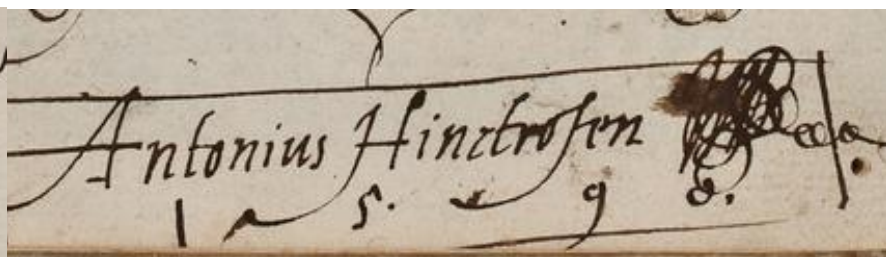 Antonius Hinctrosen
1 5. 9 8.